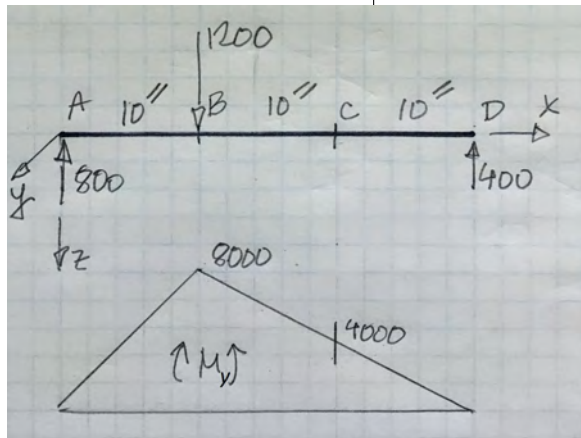 1200
A 10" B 10" C 10" D X
y 800 400
z
8000
4000
My